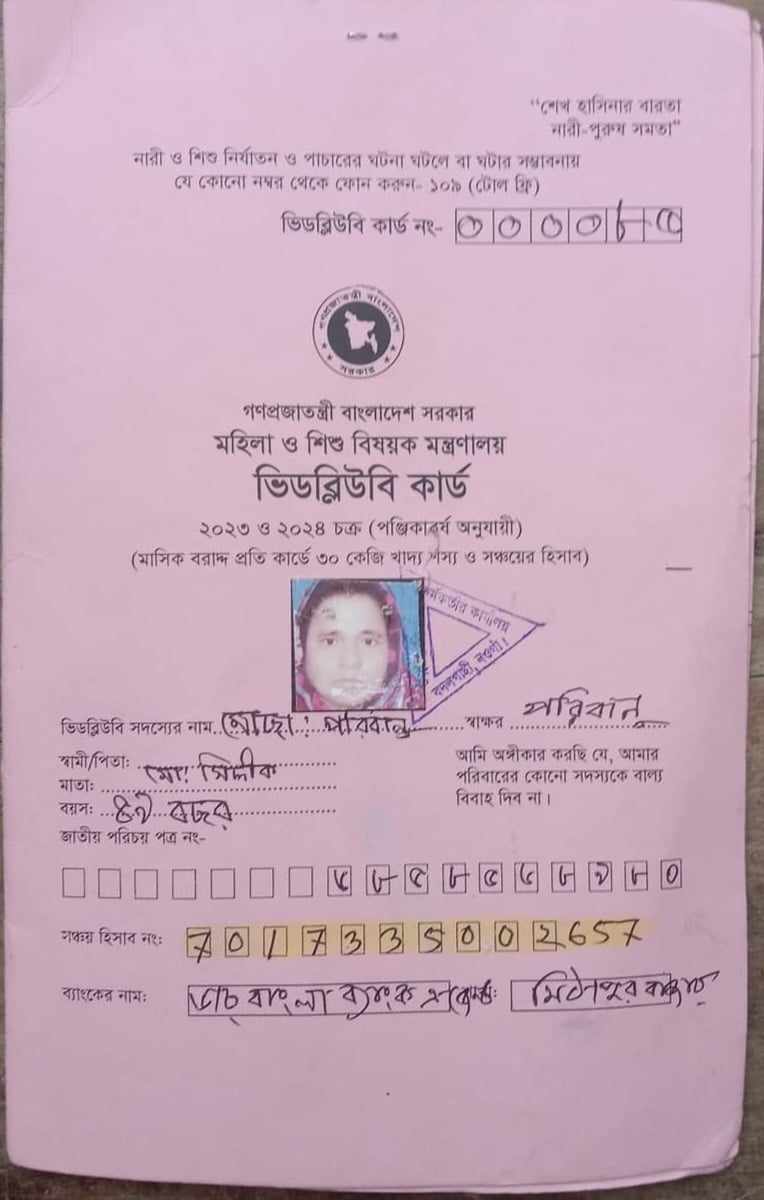 "শেখ হাসিনার বারতা
নারী-পুরুষ সমতা"
নারী ও শিশু নির্যাতন ও পাচারের ঘটনা ঘটলে বা ঘটার সম্ভাবনায়
যে কোনো নম্বর থেকে ফোন করুন- ১০৯ (টোল ফ্রি)
ভিডব্লিউবি কার্ড নং- ০০০০৮৫
গণপ্রজাতন্ত্রী বাংলাদেশ
সরকার
গণপ্রজাতন্ত্রী বাংলাদেশ সরকার
মহিলা ও শিশু বিষয়ক মন্ত্রণালয়
ভিডব্লিউবি কার্ড
২০২৩ ও ২০২৪ চক্র (পঞ্জিকাবর্ষ অনুযায়ী)
(মাসিক বরাদ্দ প্রতি কার্ডে ৩০ কেজি খাদ্য শস্য ও সঞ্চয়ের হিসাব)
কর্মকর্তার কার্যালয়
বদলগাছী, নওগাঁ।
ভিডব্লিউবি সদস্যের নাম.. মোছা: পরিবানু স্বাক্ষর পরিবানু
স্বামী/পিতা: মো: সিদ্দীক
মাতা:
বয়স: বছর
আমি অঙ্গীকার করছি যে, আমার
পরিবারের কোনো সদস্যকে বাল্য
বিবাহ দিব না।
জাতীয় পরিচয় পত্র নং-
সঞ্চয় হিসাব নং: 7017335002657
ব্যাংকের নাম: ডাচ্ বাংলা ব্যাংক মিঠাপুর বাজার